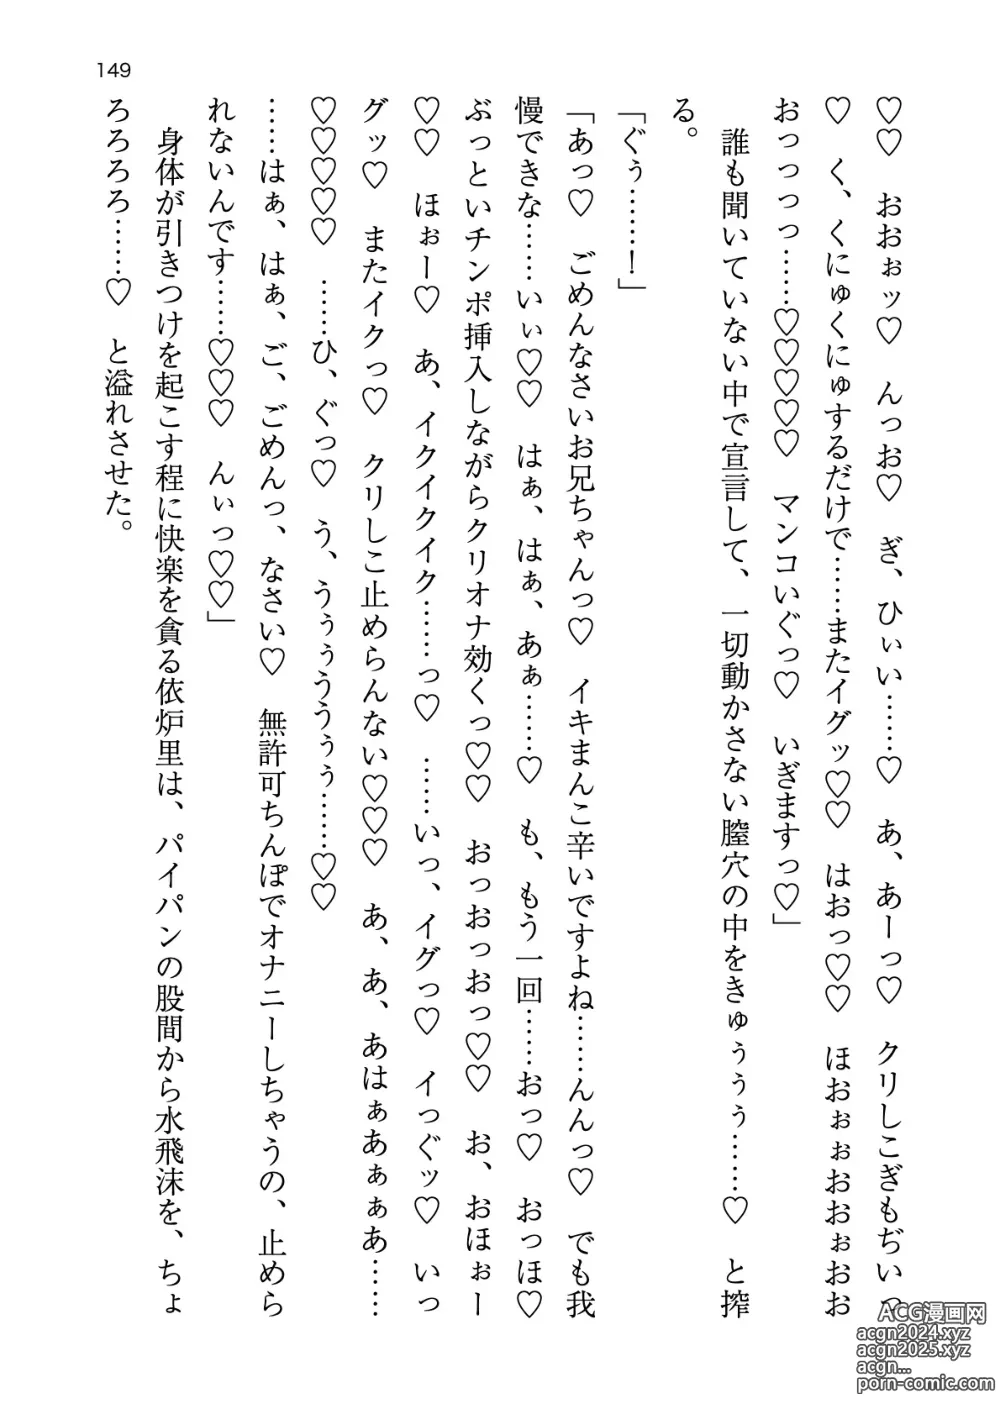 149
♡♡　おおぉッ♡　んっお♡　ぎ、ひぃい……♡　あ、あーっ♡　クリしこぎもぢいっ
♡　く、くにゅくにゅするだけで……またイグッ♡♡　はおっ♡♡　ほおぉぉおおぉおお
おっっっっ……♡♡♡♡♡　マンコいぐっ♡　いぎますっ♡」
　誰も聞いていない中で宣言して、一切動かさない膣穴の中をきゅぅぅぅ……♡　と搾
る。
「ぐぅ……！」
「あっ♡　ごめんなさいお兄ちゃんっ♡　イキまんこ辛いですよね……んんっ♡　でも我
慢できな……いぃ♡♡　はぁ、はぁ、あぁ……♡　も、もう一回……おっ♡　おっほ♡
ぶっといチンポ挿入しながらクリオナ効くっ♡♡　おっおっおっ♡♡　お、おほぉー
♡♡　ほぉー♡　あ、イクイクイク……っ♡　……いっ、イグっ♡　イっぐッ♡　いっ
グッ♡　またイクっ♡　クリしこ止めらんない♡♡♡　あ、あ、あはぁあぁぁあ……
♡♡♡♡♡　……ひ、ぐっ♡　う、うぅぅううぅぅ……♡♡
……はぁ、はぁ、ご、ごめんっ、なさい♡　無許可ちんぽでオナニーしちゃうの、止めら
れないんです……♡♡♡　んぃっ♡♡」
　身体が引きつけを起こす程に快楽を貪る依炉里は、パイパンの股間から水飛沫を、ちょ
ろろろろ……♡　と溢れさせた。
ACG漫画网
acgn2024.xyz
acgn2025.xyz
acgn...
porn-comic.com